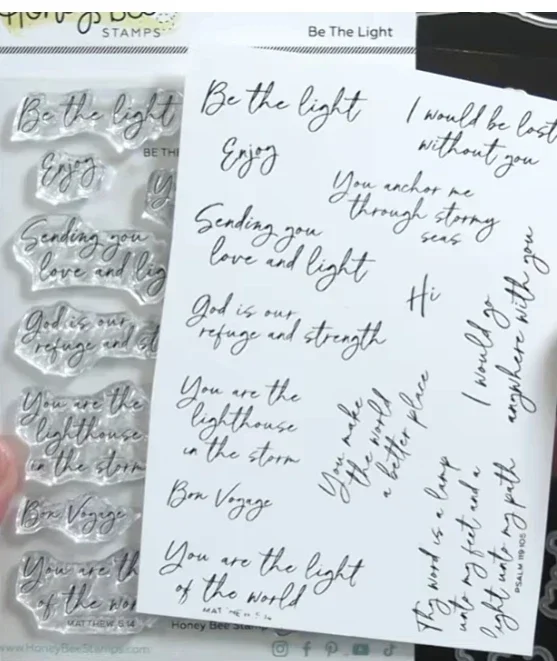 Honey Bee
STAMPS
Be The Light
Be the light
Enjoy
Sending you
love and lig
God is our
refuge and st
You are the
lighthouse
in the storm
Bon Voyage
You are th
of the wor
MATTHEW 5:14
www.HoneyBeeStamps.com
BE THE
Y
Be the light
Enjoy
Sending you
love and light
God is our
refuge and strength
You are the
lighthouse
in the storm
Bon Voyage
You are the light
of the world
MATTHEW 5:14
I would be lost
without you
You anchor me
through stormy
seas
Hi
I would go
anywhere with you
You make
the world
a better place
Thy word is a lamp
unto my feet and a
light unto my path
PSALM 119:105
Honey Bee Stamps